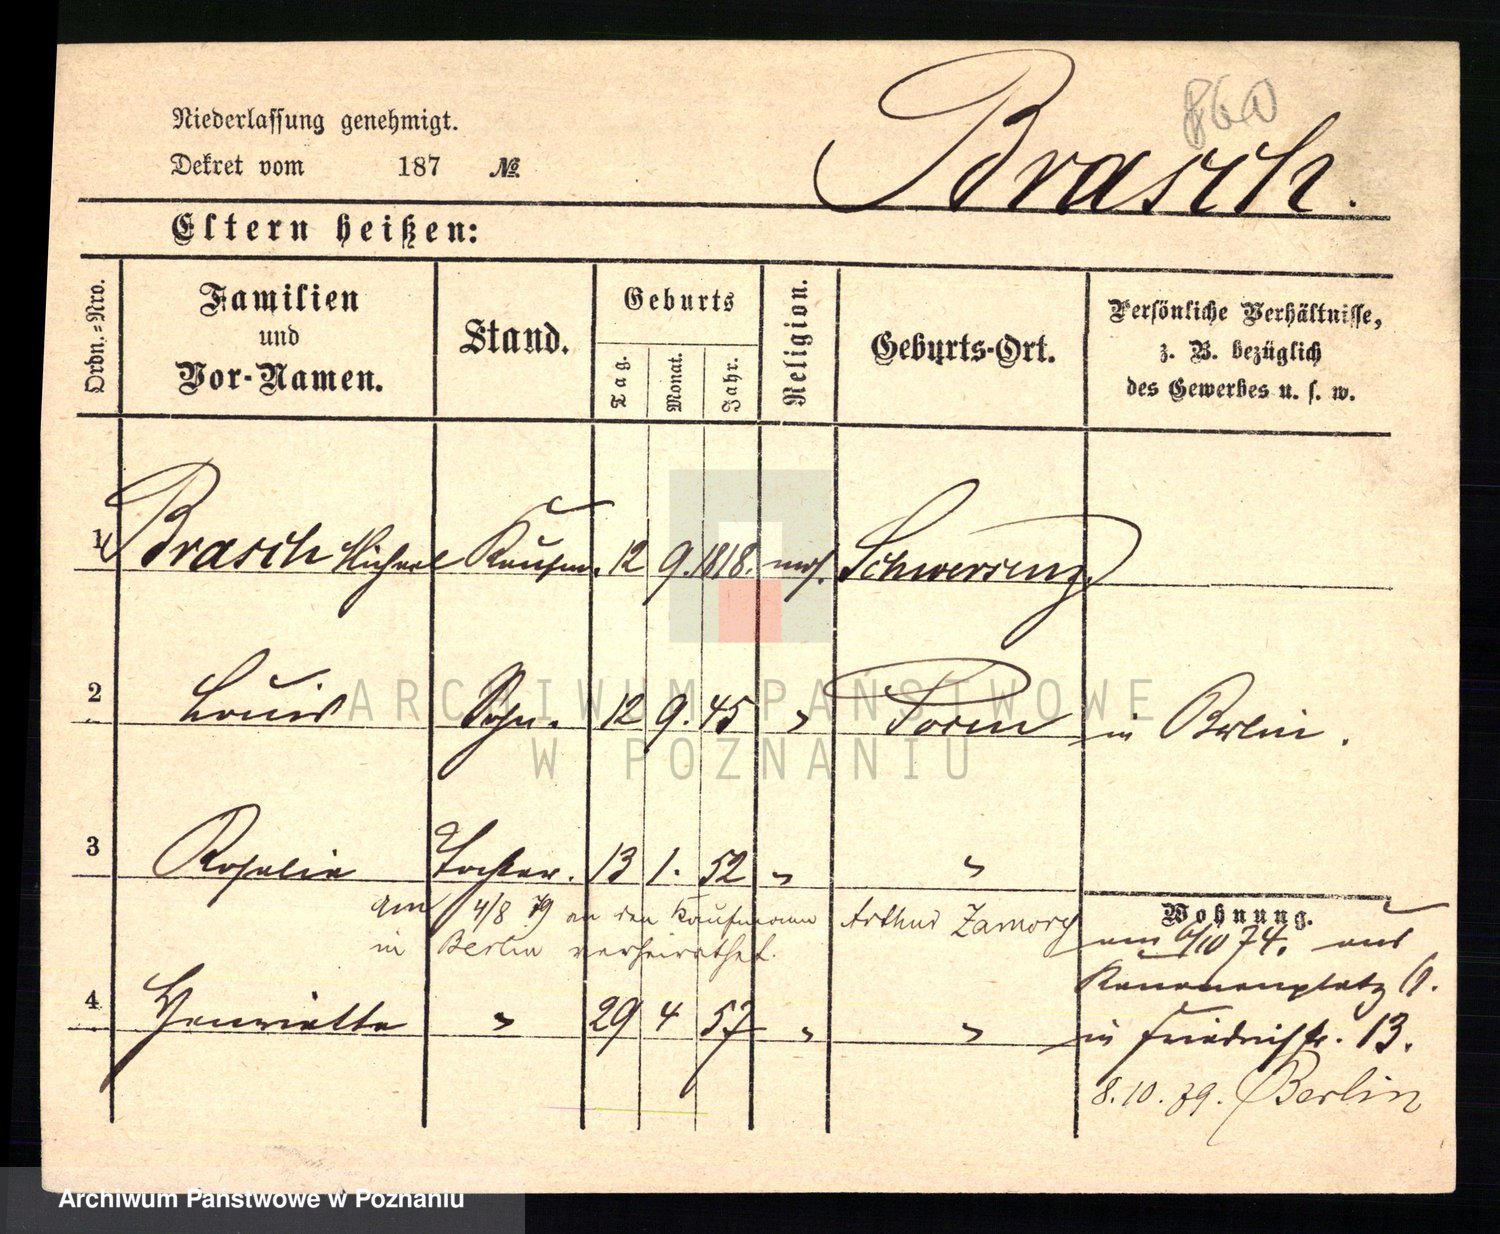 860
Niederlassung genehmigt.
Dekret vom 187 №
Brasch.
Eltern heißen:
Ordn.=Nro.
Familien
und
Vor-Namen.
Stand.
Geburts
Tag.
Monat.
Jahr.
Religion.
Geburts-Ort.
Persönliche Verhältnisse,
z. B. bezüglich
des Gewerbes u. s. w.
1 Brasch Michael Kaufm. 12 9. 1818. mos. Schwersenz.
2 Louis Sohn. 12 9. 45 " Posen in Berlin.
3 Rosalie Tochter. 13 1. 52 " "
am 4/8 79 an den Kaufmann Arthur Zamory
in Berlin verheirathet.
4 Henriette " 29 4 57 " "
Wohnung.
am /10 74. aus
Kanonenplatz
in Friedrichstr. 13.
8.10.79. Berlin
ARCHIWUM PAŃSTWOWE
W POZNANIU
Archiwum Państwowe w Poznaniu